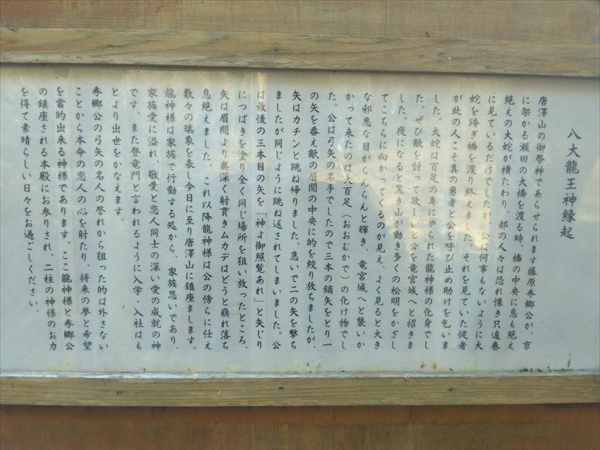 八大龍王神縁起
唐澤山の御祭神であらせられます藤原秀郷公が、京
に架かる瀬田の大橋を渡る時、橋の中央に息も絶え
絶えの大蛇が横たわり、都の人々は恐れ慄き只遠巻
に見ているだけでしたが、公は何事もないように大
蛇を跨ぎ橋を渡り終えました。それを見ていた従者
が此の人こそ真の勇者と公を呼び止め助けを乞いま
した。大蛇は百足の毒に侍られた龍神様の化身でし
た。ぜひ敵を討って欲しいと公を竜宮城へと招きま
した。夜になると黒き山が動き多くの松明をかざし
てこちらに向かってくるのが見え、よく見ると大き
な邪悪な目がらんらんと輝き、竜宮城へと襲いか
かって来たのは大百足（おおむかで）の化け物でし
た。公は弓矢の名手でしたので三本の鏑矢をとり一
の矢を番え敵の眉間の中央に的を絞り放ちましたが、
矢はカチンと跳ね帰りました。急いで二の矢を撃ち
ましたが同じように跳ね返されてしまいました。公
は最後の三本目の矢を「神よ御照覧あれ」と矢じり
につばきを塗り全く同じ場所を狙い放ったところ、
矢は眉間より奥深く射貫きムカデはどうと崩れ落ち
息絶えました。これ以降龍神様は公の傍らに仕え
数々の瑞象を表し今日に至り唐澤山に鎮座まします。
龍神様は家族で行動する処から、家族思いであり、
家族愛に溢れ、敬愛と恋人同士の深い愛の成就の神
です。また登竜門と言われるように入学・入社はも
とより出世をかなえます。
秀郷公の弓矢の名人の誉れから狙った的は外さない
ことから本命の恋人の心を射たり、将来の夢と希望
を当的出来る神様であります。ここ龍神様と秀郷公
の鎮座される本殿にお参りされ、二柱の神様のお力
を得て素晴らしい日々をお過ごしください。